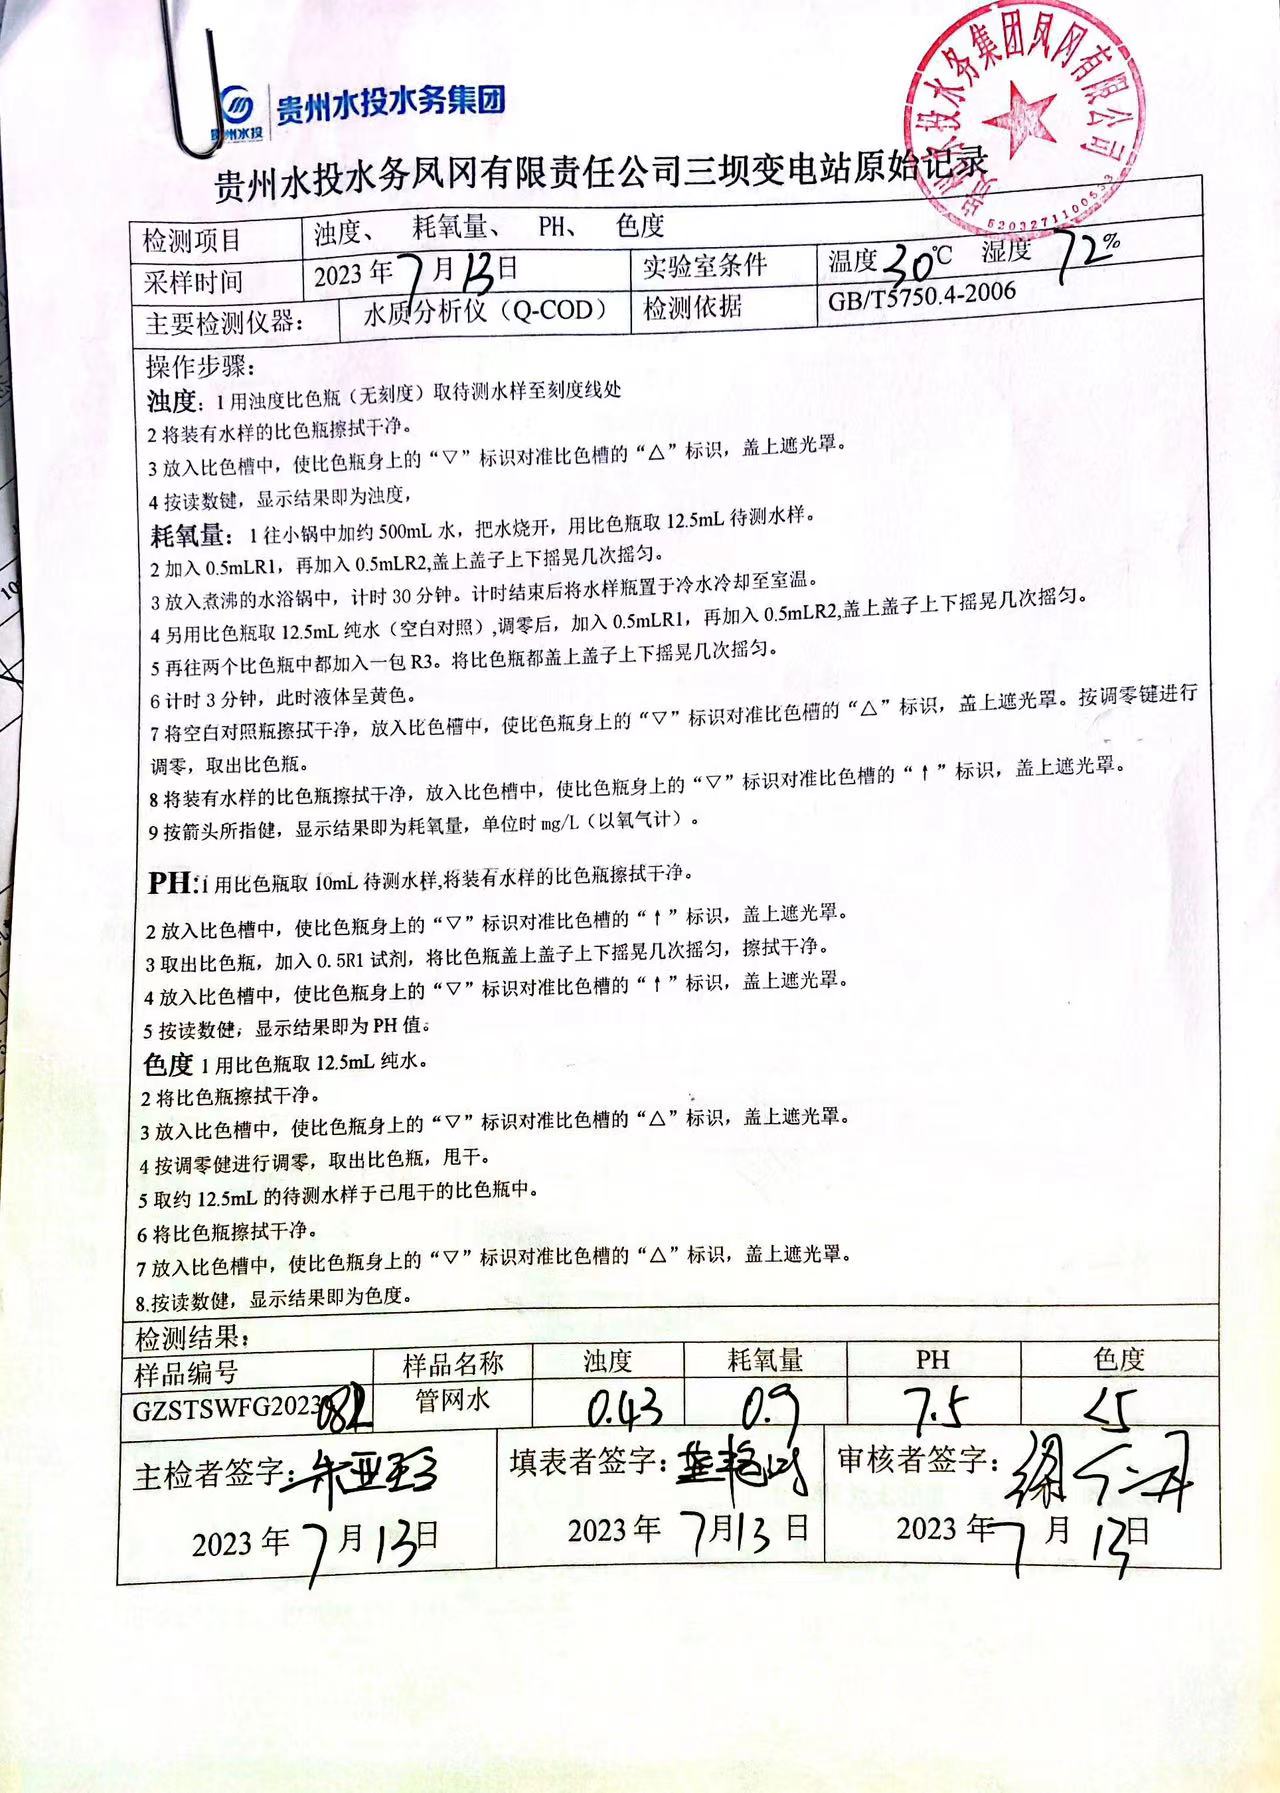 贵州水投 贵州水投水务集团
贵州水投水务集团凤冈有限公司
5203271100533
贵州水投水务凤冈有限责任公司三坝变电站原始记录
检测项目 浊度、 耗氧量、 PH、 色度
采样时间 2023年7月13日 实验室条件 温度30℃ 湿度72%
主要检测仪器： 水质分析仪（Q-COD） 检测依据 GB/T5750.4-2006
操作步骤：
浊度：1用浊度比色瓶（无刻度）取待测水样至刻度线处
2将装有水样的比色瓶擦拭干净。
3放入比色槽中，使比色瓶身上的“▽”标识对准比色槽的“△”标识，盖上遮光罩。
4按读数键，显示结果即为浊度，
耗氧量：1往小锅中加约500mL水，把水烧开，用比色瓶取12.5mL待测水样。
2加入0.5mLR1，再加入0.5mLR2,盖上盖子上下摇晃几次摇匀。
3放入煮沸的水浴锅中，计时30分钟。计时结束后将水样瓶置于冷水冷却至室温。
4另用比色瓶取12.5mL纯水（空白对照）,调零后，加入0.5mLR1，再加入0.5mLR2,盖上盖子上下摇晃几次摇匀。
5再往两个比色瓶中都加入一包R3。将比色瓶都盖上盖子上下摇晃几次摇匀。
6计时3分钟，此时液体呈黄色。
7将空白对照瓶擦拭干净，放入比色槽中，使比色瓶身上的“▽”标识对准比色槽的“△”标识，盖上遮光罩。按调零键进行
调零，取出比色瓶。
8将装有水样的比色瓶擦拭干净，放入比色槽中，使比色瓶身上的“▽”标识对准比色槽的“↑”标识，盖上遮光罩。
9按箭头所指健，显示结果即为耗氧量，单位时mg/L（以氧气计）。
PH:1用比色瓶取10mL待测水样,将装有水样的比色瓶擦拭干净。
2放入比色槽中，使比色瓶身上的“▽”标识对准比色槽的“↑”标识，盖上遮光罩。
3取出比色瓶，加入0.5R1试剂，将比色瓶盖上盖子上下摇晃几次摇匀，擦拭干净。
4放入比色槽中，使比色瓶身上的“▽”标识对准比色槽的“↑”标识，盖上遮光罩。
5按读数健，显示结果即为PH值。
色度1用比色瓶取12.5mL纯水。
2将比色瓶擦拭干净。
3放入比色槽中，使比色瓶身上的“▽”标识对准比色槽的“△”标识，盖上遮光罩。
4按调零健进行调零，取出比色瓶，甩干。
5取约12.5mL的待测水样于已甩干的比色瓶中。
6将比色瓶擦拭干净。
7放入比色槽中，使比色瓶身上的“▽”标识对准比色槽的“△”标识，盖上遮光罩。
8.按读数健，显示结果即为色度。
检测结果：
样品编号 样品名称 浊度 耗氧量 PH 色度
GZSTSWFG2023082 管网水 0.43 0.9 7.5 <5
主检者签字： 填表者签字： 审核者签字：
2023年7月13日 2023年7月13日 2023年7月13日